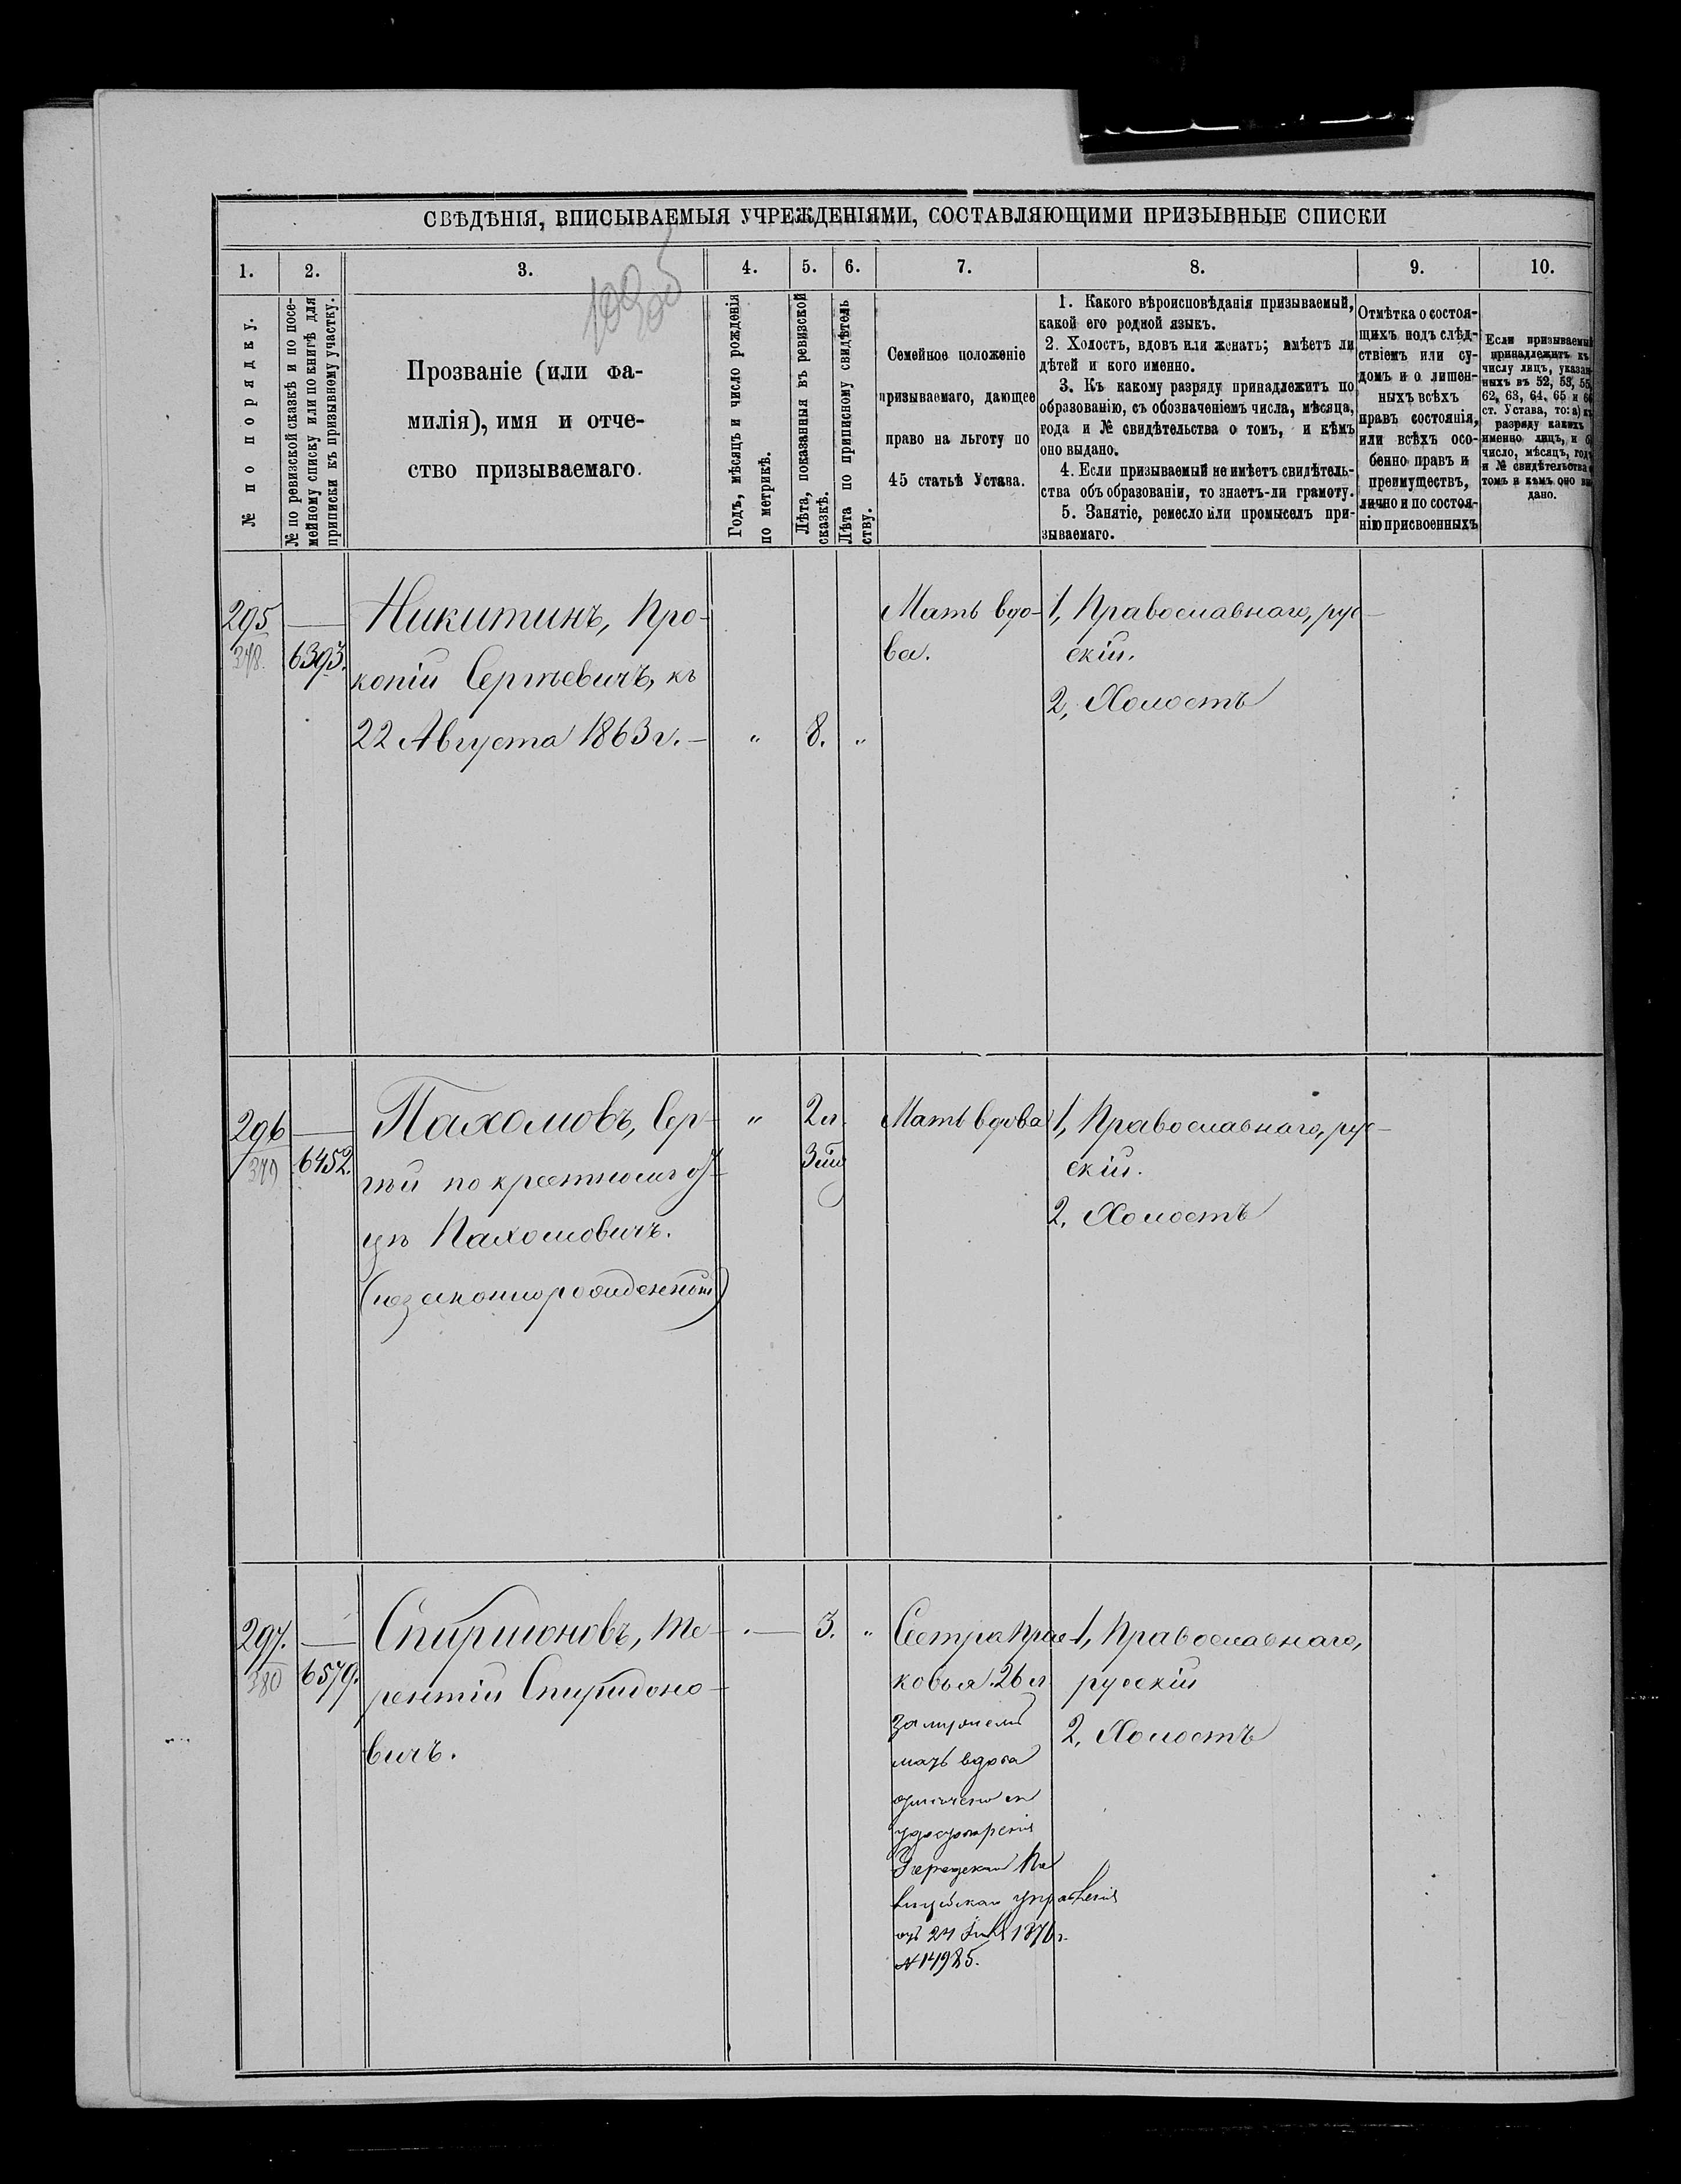 СВѢДѢНІЯ, ВПИСЫВАЕМЫЯ УЧРЕЖДЕНІЯМИ, СОСТАВЛЯЮЩИМИ ПРИЗЫВНЫЕ СПИСКИ
1. 2. 3. 4. 5. 6. 7. 8. 9. 10.
№ по порядку.
№ по ревизской сказкѣ и по посе-
мейному списку или по книгѣ для
приписки къ призывному участку.
Прозваніе (или фа-
милія), имя и отче-
ство призываемаго.
Годъ, мѣсяцъ и число рожденія
по метрикѣ.
Лѣта, показанныя въ ревизской
сказкѣ.
Лѣта по приписному свидѣтель
ству.
Семейное положеніе
призываемаго, дающее
право на льготу по
45 статьѣ Устава.
1. Какого вѣроисповѣданія призываемый,
какой его родной языкъ.
2. Холостъ, вдовъ или женатъ; имѣетъ ли
дѣтей и кого именно.
3. Къ какому разряду принадлежитъ по
образованію, съ обозначеніемъ числа, мѣсяца,
года и № свидѣтельства о томъ, и кѣмъ
оно выдано.
4. Если призываемый не имѣетъ свидѣтель-
ства объ образованіи, то знаетъ-ли грамоту.
5. Занятіе, ремесло или промыселъ при-
зываемаго.
Отмѣтка о состоя-
щихъ подъ слѣд-
ствіемъ или су-
домъ и о лишен-
ныхъ всѣхъ
правъ состоянія,
или всѣхъ осо-
бенно правъ и
преимуществъ,
лично и по состоя-
нію присвоенныхъ
Если призываемый
принадлежитъ къ
числу лицъ, указан
ныхъ въ 52, 53, 55,
62, 63, 64, 65 и 66
ст. Устава, то: а) къ
разряду какихъ
именно лицъ, и б
число, мѣсяцъ, годъ
и № свидѣтельства о
томъ и кѣмъ оно вы
дано.
295
378.
6393.
Никитинъ, Про-
копій Сергѣевичъ, къ
22 Августа 1863 г. —
" 8. "
Мать вдо-
ва.
1, Православнаго, рус-
скій.
2, Холостъ
296
379
6452.
Пахомовъ, Сер-
гѣй по крестному от-
цу Пахомовичъ.
(незаконнорожденный)
" 2 л.
3 м
Мать вдова
1, Православнаго, рус-
скій.
2, Холостъ
297.
380
6579.
Спиридоновъ, Те-
рентій Спиридоно-
вичъ.
— 3. "
Сестра Прас-
ковья 26 л
замужемъ
мать вдова
управленія
отъ 24 1876 г.
№ 14985.
1, Православнаго,
русскій
2, Холостъ